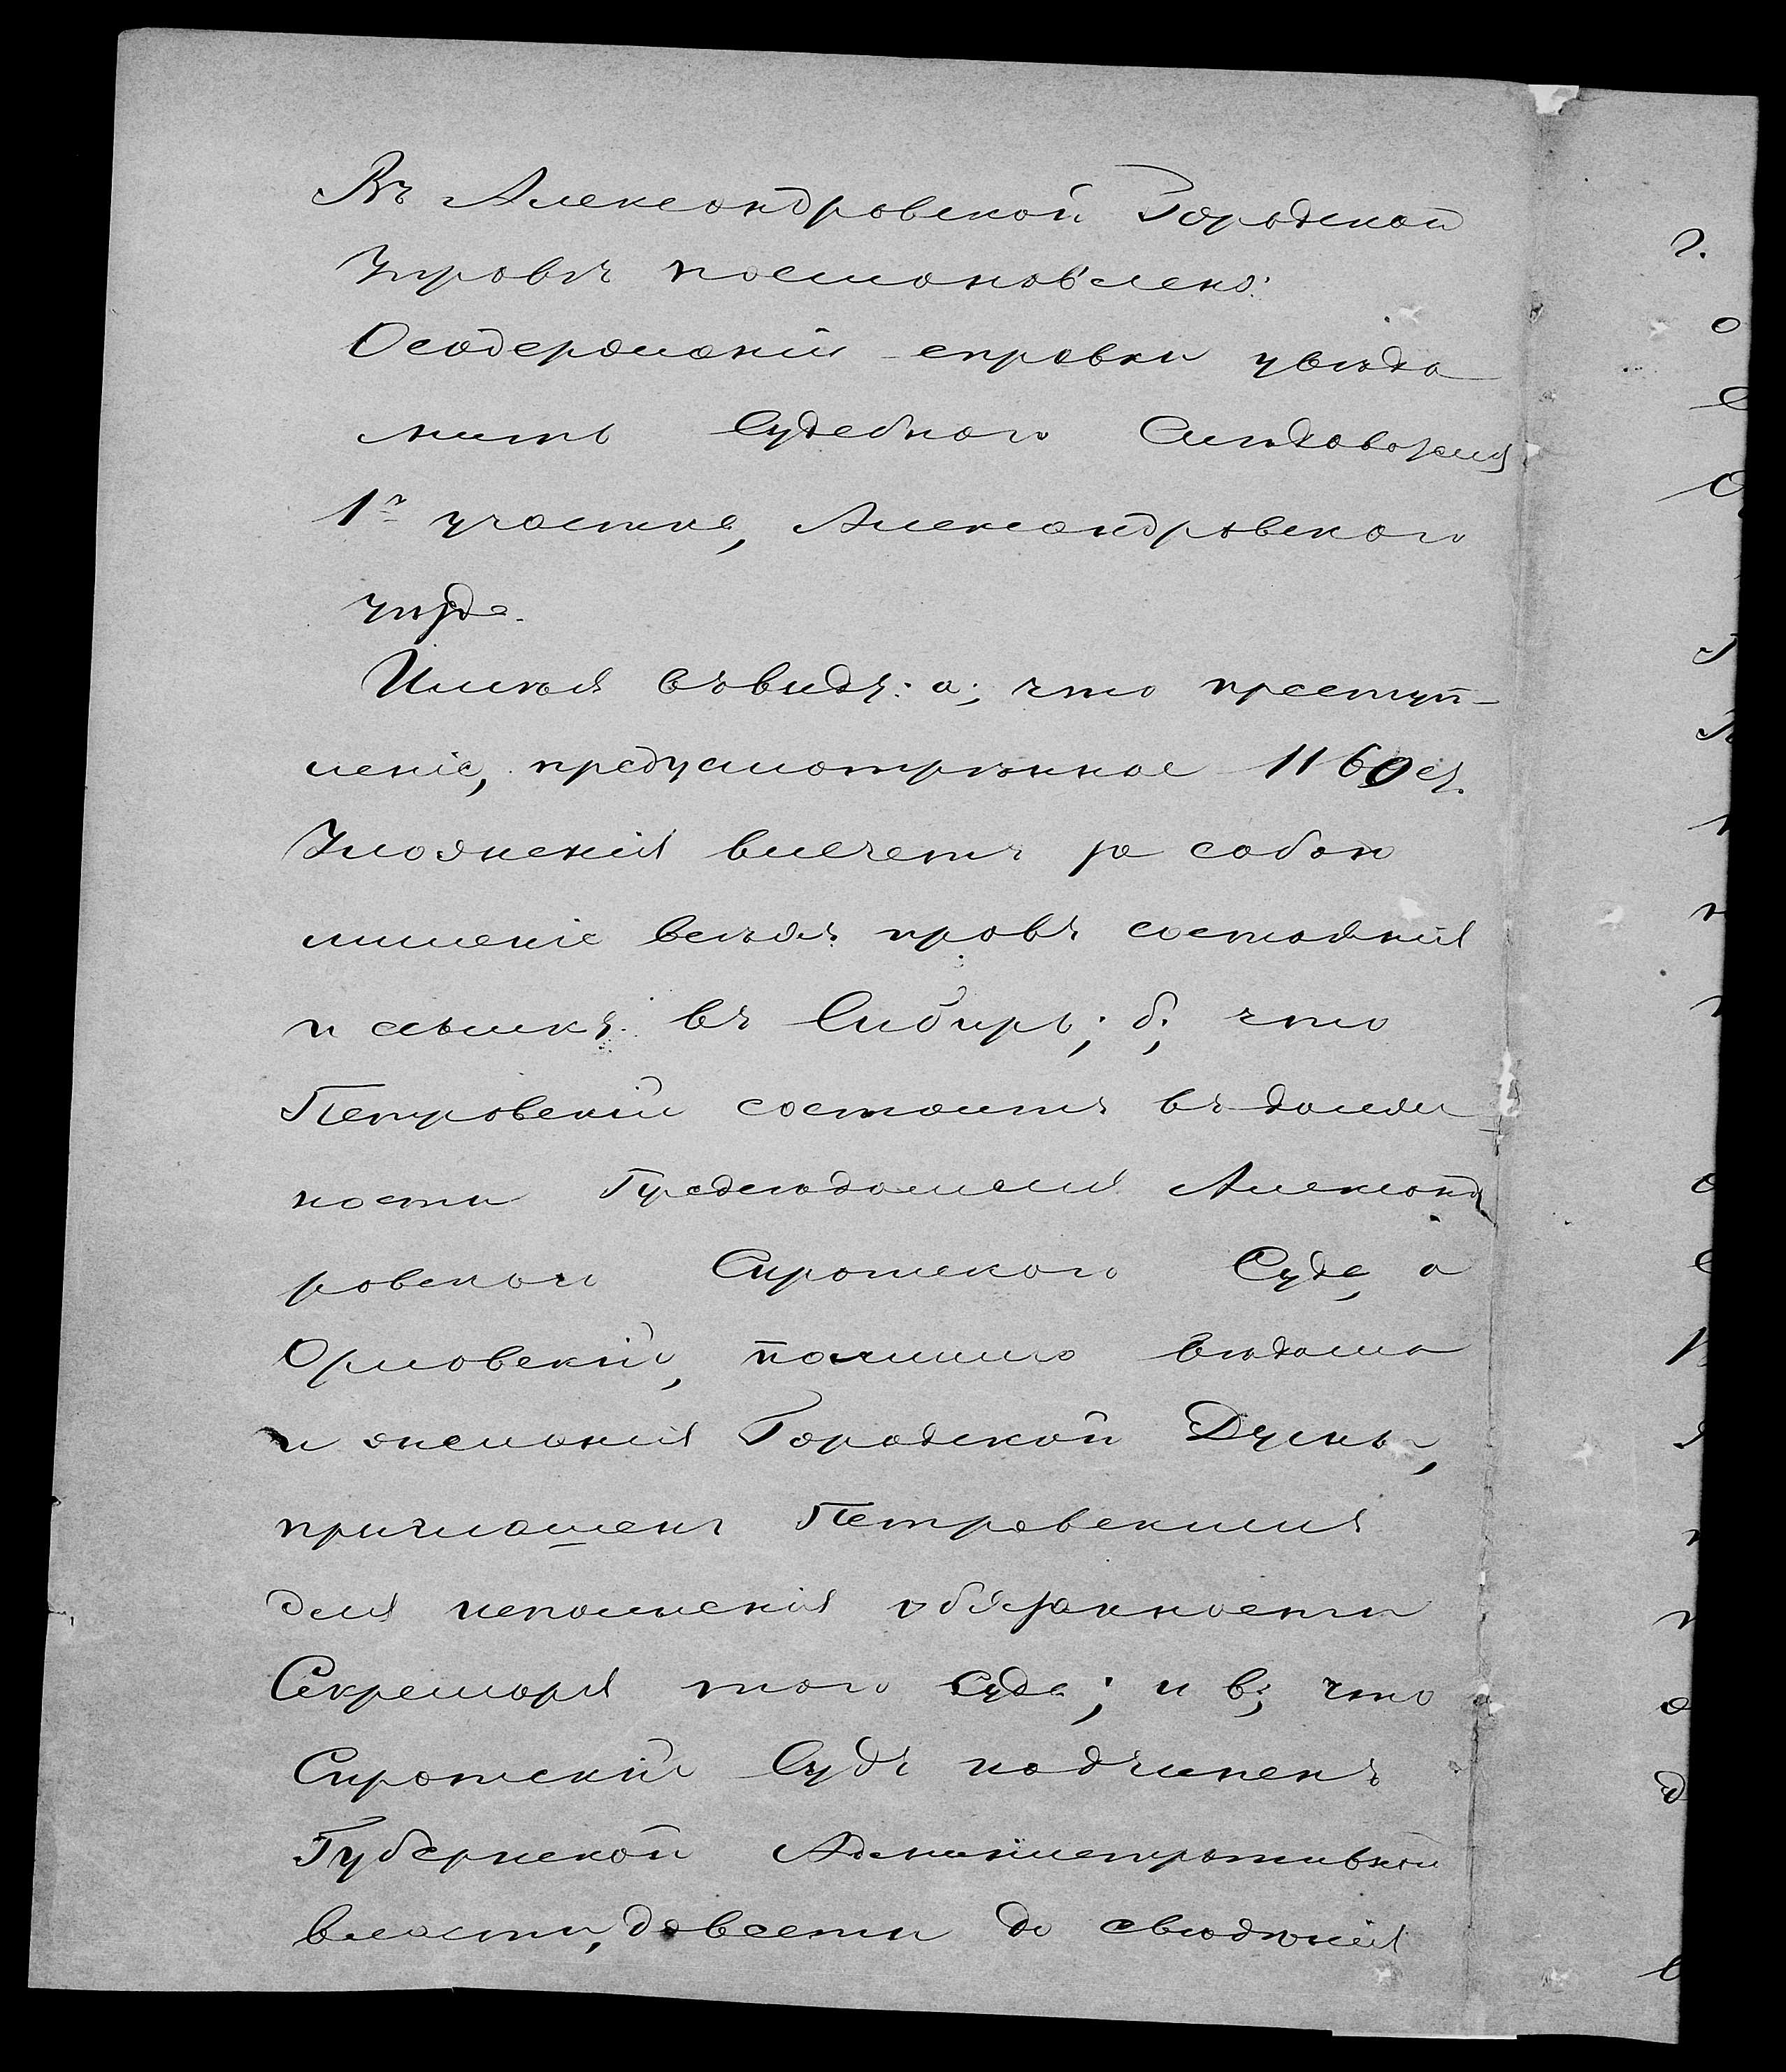 Въ Александровской Городской
Управѣ постановлено:
О содержаніи справки увѣдо
мить Судебнаго Слѣдователя
1<sup>го</sup> участка, Александровскаго
уѣзда.
Имѣя въ виду: а; что преступ-
леніе, предусмотрѣнное 1160 ст.
Уложенія влечетъ за собою
лишеніе всѣхъ правъ состоянія
и ссылку въ Сибирь; б; что
Петровскій состоитъ въ долж
ности Предсѣдателя Александ
ровскаго Сиротскаго Суда, а
Орловскій, помимо вѣдома
и желанія Городской Думы,
приглашенъ Петровскимъ
для исполненія обязанности
Секретаря того Суда; и в; что
Сиротскій Судъ подчиненъ
Губернской Административной
власти, довести до свѣдѣнія